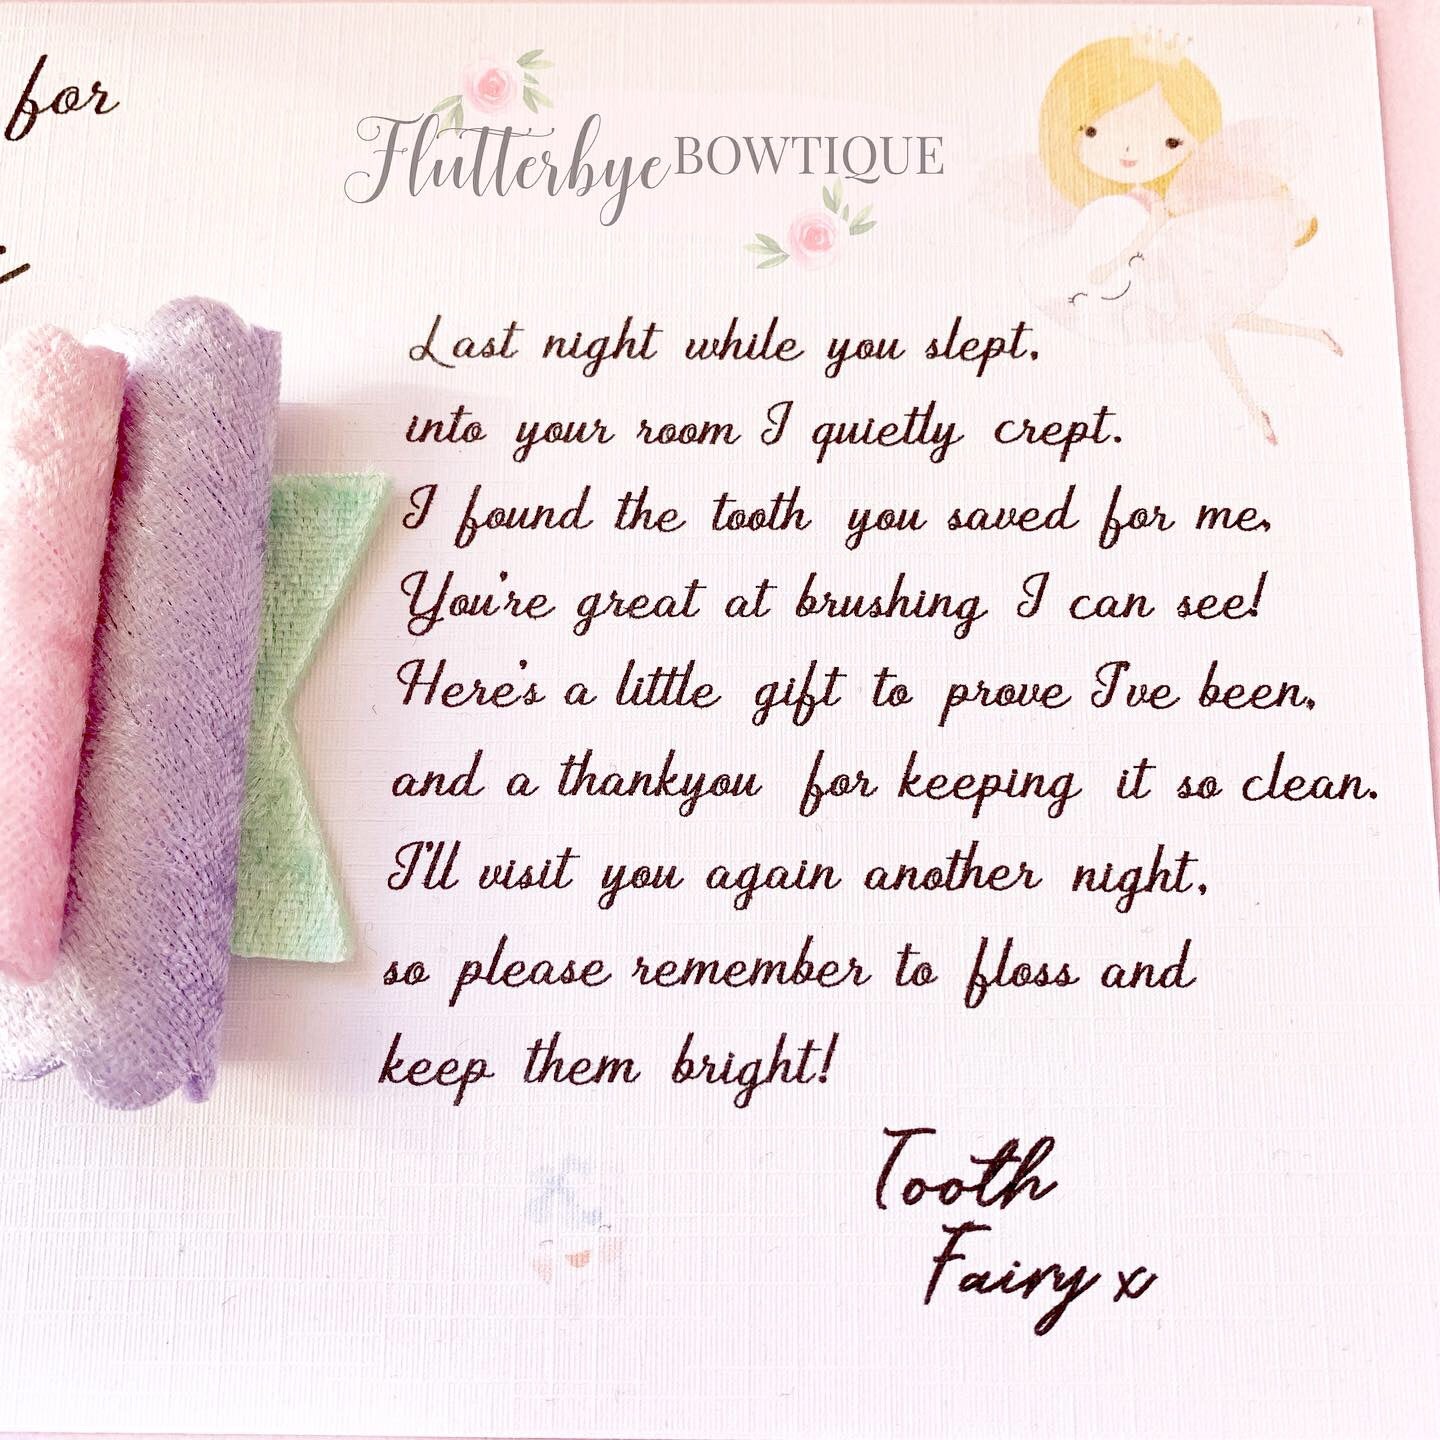 for
Flutterbye BOWTIQUE
Last night while you slept,
into your room I quietly crept.
I found the tooth you saved for me,
You're great at brushing I can see!
Here's a little gift to prove I've been,
and a thankyou for keeping it so clean.
I'll visit you again another night,
so please remember to floss and
keep them bright!
Tooth
Fairy x